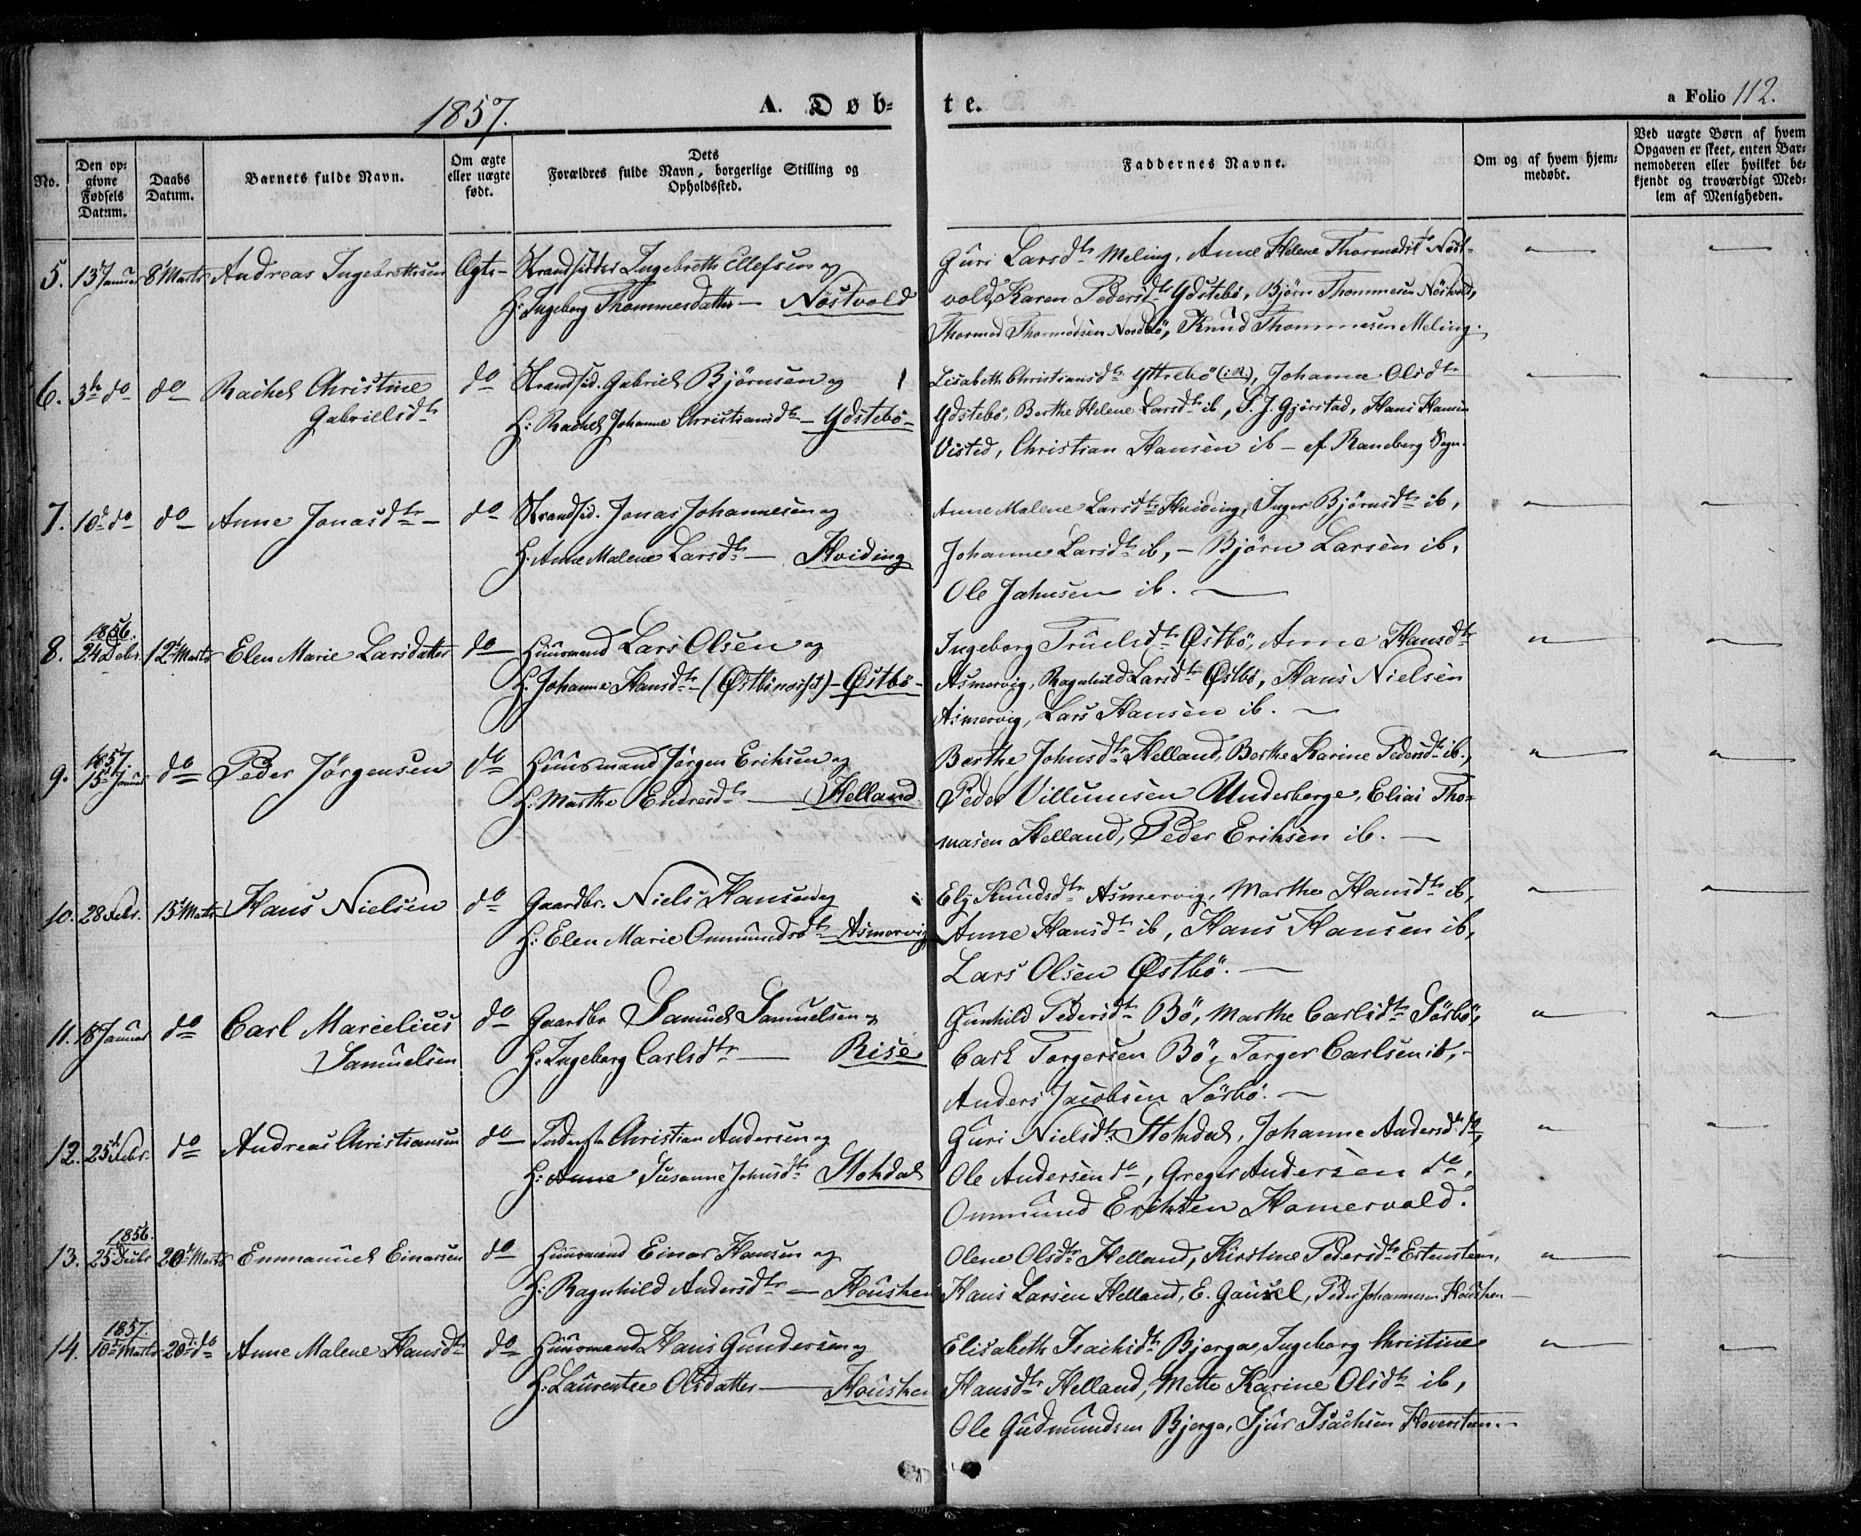 1857.
A. Døb-
te.
a Folio 112.
No.
Den op-
givne
Fødsels
Datum.
Daabs
Datum.
Barnets fulde Navn.
Om ægte
eller uægte
født.
Dets
Forældres fulde Navn, borgerlige Stilling og
Opholdssted.
Faddernes Navne.
Om og af hvem hjem-
medøbt.
Ved uægte Børn af hvem
Opgaven er skeet, enten Bar-
nemoderen eller hvilket be-
kjendt og troværdigt Med-
lem af Menigheden.
5. 13 Januar 8 Marts Andreas Ingebrethsen Ægte Strandsidder Ingebreth Ellefsen og
H: Ingeborg Thommesdatter — Nøstvold
Guri Larsdtr Meling, Anne Helene Thormodsdtr Nøst-
vold, Karen Pedersdtr Ydstebö, Björn Thommesen Nöstvold,
Thormod Thormodsen Nordbö, Knud Thommesen Meling.
6. 3die do do Rachel Christine
Gabrielsdtr
do Strandsid. Gabriel Bjørnsen og
H: Rachel Johanne Christiansdtr — Ydstebö
Lisabeth Christiansdtr Yttrebö, Johanne Olsdtr
Ydstebö, Berthe Helene Larsdtr ib, S. J. Gjörstad, Hans Hansen
Visted, Christian Hansen ib — af Randberg Sogn.
7. 10de do do Anne Jonasdtr — do Strandsid. Jonas Johannesen og
H. Anne Malene Larsdtr — Hviding
Anne Malene Larsdtr Hviding, Inger Björnsdtr ib,
Johanne Larsdtr ib, — Björn Larsen ib,
Ole Johnsen ib. —
8. 1856.
24 Debr. 12 Marts Elen Marie Larsdatter do Huusmand Lars Olsen og
H. Johanne Hansdtr — Østbö
Ingeborg Truelsdtr Østbö, Anne Hansdtr
Asmervig, Ragnhild Larsdtr Østbö, Hans Nielsen
Asmervig, Lars Hansen ib. —
9. 1857.
15 Januar do Peder Jørgensen do Huusmand Jørgen Eriksen og
H. Marthe Endresdtr — Helland
Berthe Johnsdtr Helland, Berthe Karine Pedersdtr ib,
Peder Villumsen Underberge, Elias Tho-
masen Helland, Peder Eriksen ib. —
10. 28 Febr. 15 Marts Hans Nielsen do Gaardbr. Niels Hansen og
H: Elen Marie Ommundsdtr Asmervig
Elj Knudsdtr Asmervig, Marthe Hansdtr ib,
Anne Hansdtr ib, Hans Hansen ib,
Lars Olsen Østbö. —
11. 18 Januar do Carl Marcelius
Samuelsen
do Gaardbr Samuel Samuelsen og
H. Ingeborg Carlsdtr — Rise
Gunhild Pedersdtr Bö, Marthe Carlsdtr Sörbö,
Carl Torgersen Bö, Torger Carlsen ib, —
Anders Jacobsen Sörbö. —
12. 25 Febr. do Andreas Christiansen do Christian Andersen og
H: Anne Susanne Johnsdtr Stohdal
Guri Nielsdtr Stohdal, Johanne Andersdtr do,
Ole Andersen do, Greger Andersen do,
Ommund Eriksen Hamervold.
13. 1856.
25 Debr 20 Marts Emmanuel Einarsen do Huusmand Einar Hansen og
H. Ragnhild Andersdtr — Housken
Olene Olsdtr Helland, Kirstine Pedersdtr Estensteen,
Hans Larsen Helland, E. Gausel, Peder Johannesen Housken —
14. 1857.
10 Marts 20 do Anne Malene Hansdtr do Huusmand Hans Gundersen og
H. Laurentse Olsdatter — Housken
Elisabeth Isachsdtr Bjerga, Ingeborg Christine
Hansdtr Helland, Mette Karine Olsdtr ib,
Ole Gudmundsen Bjerga, Sjur Isachsen Haversteen —